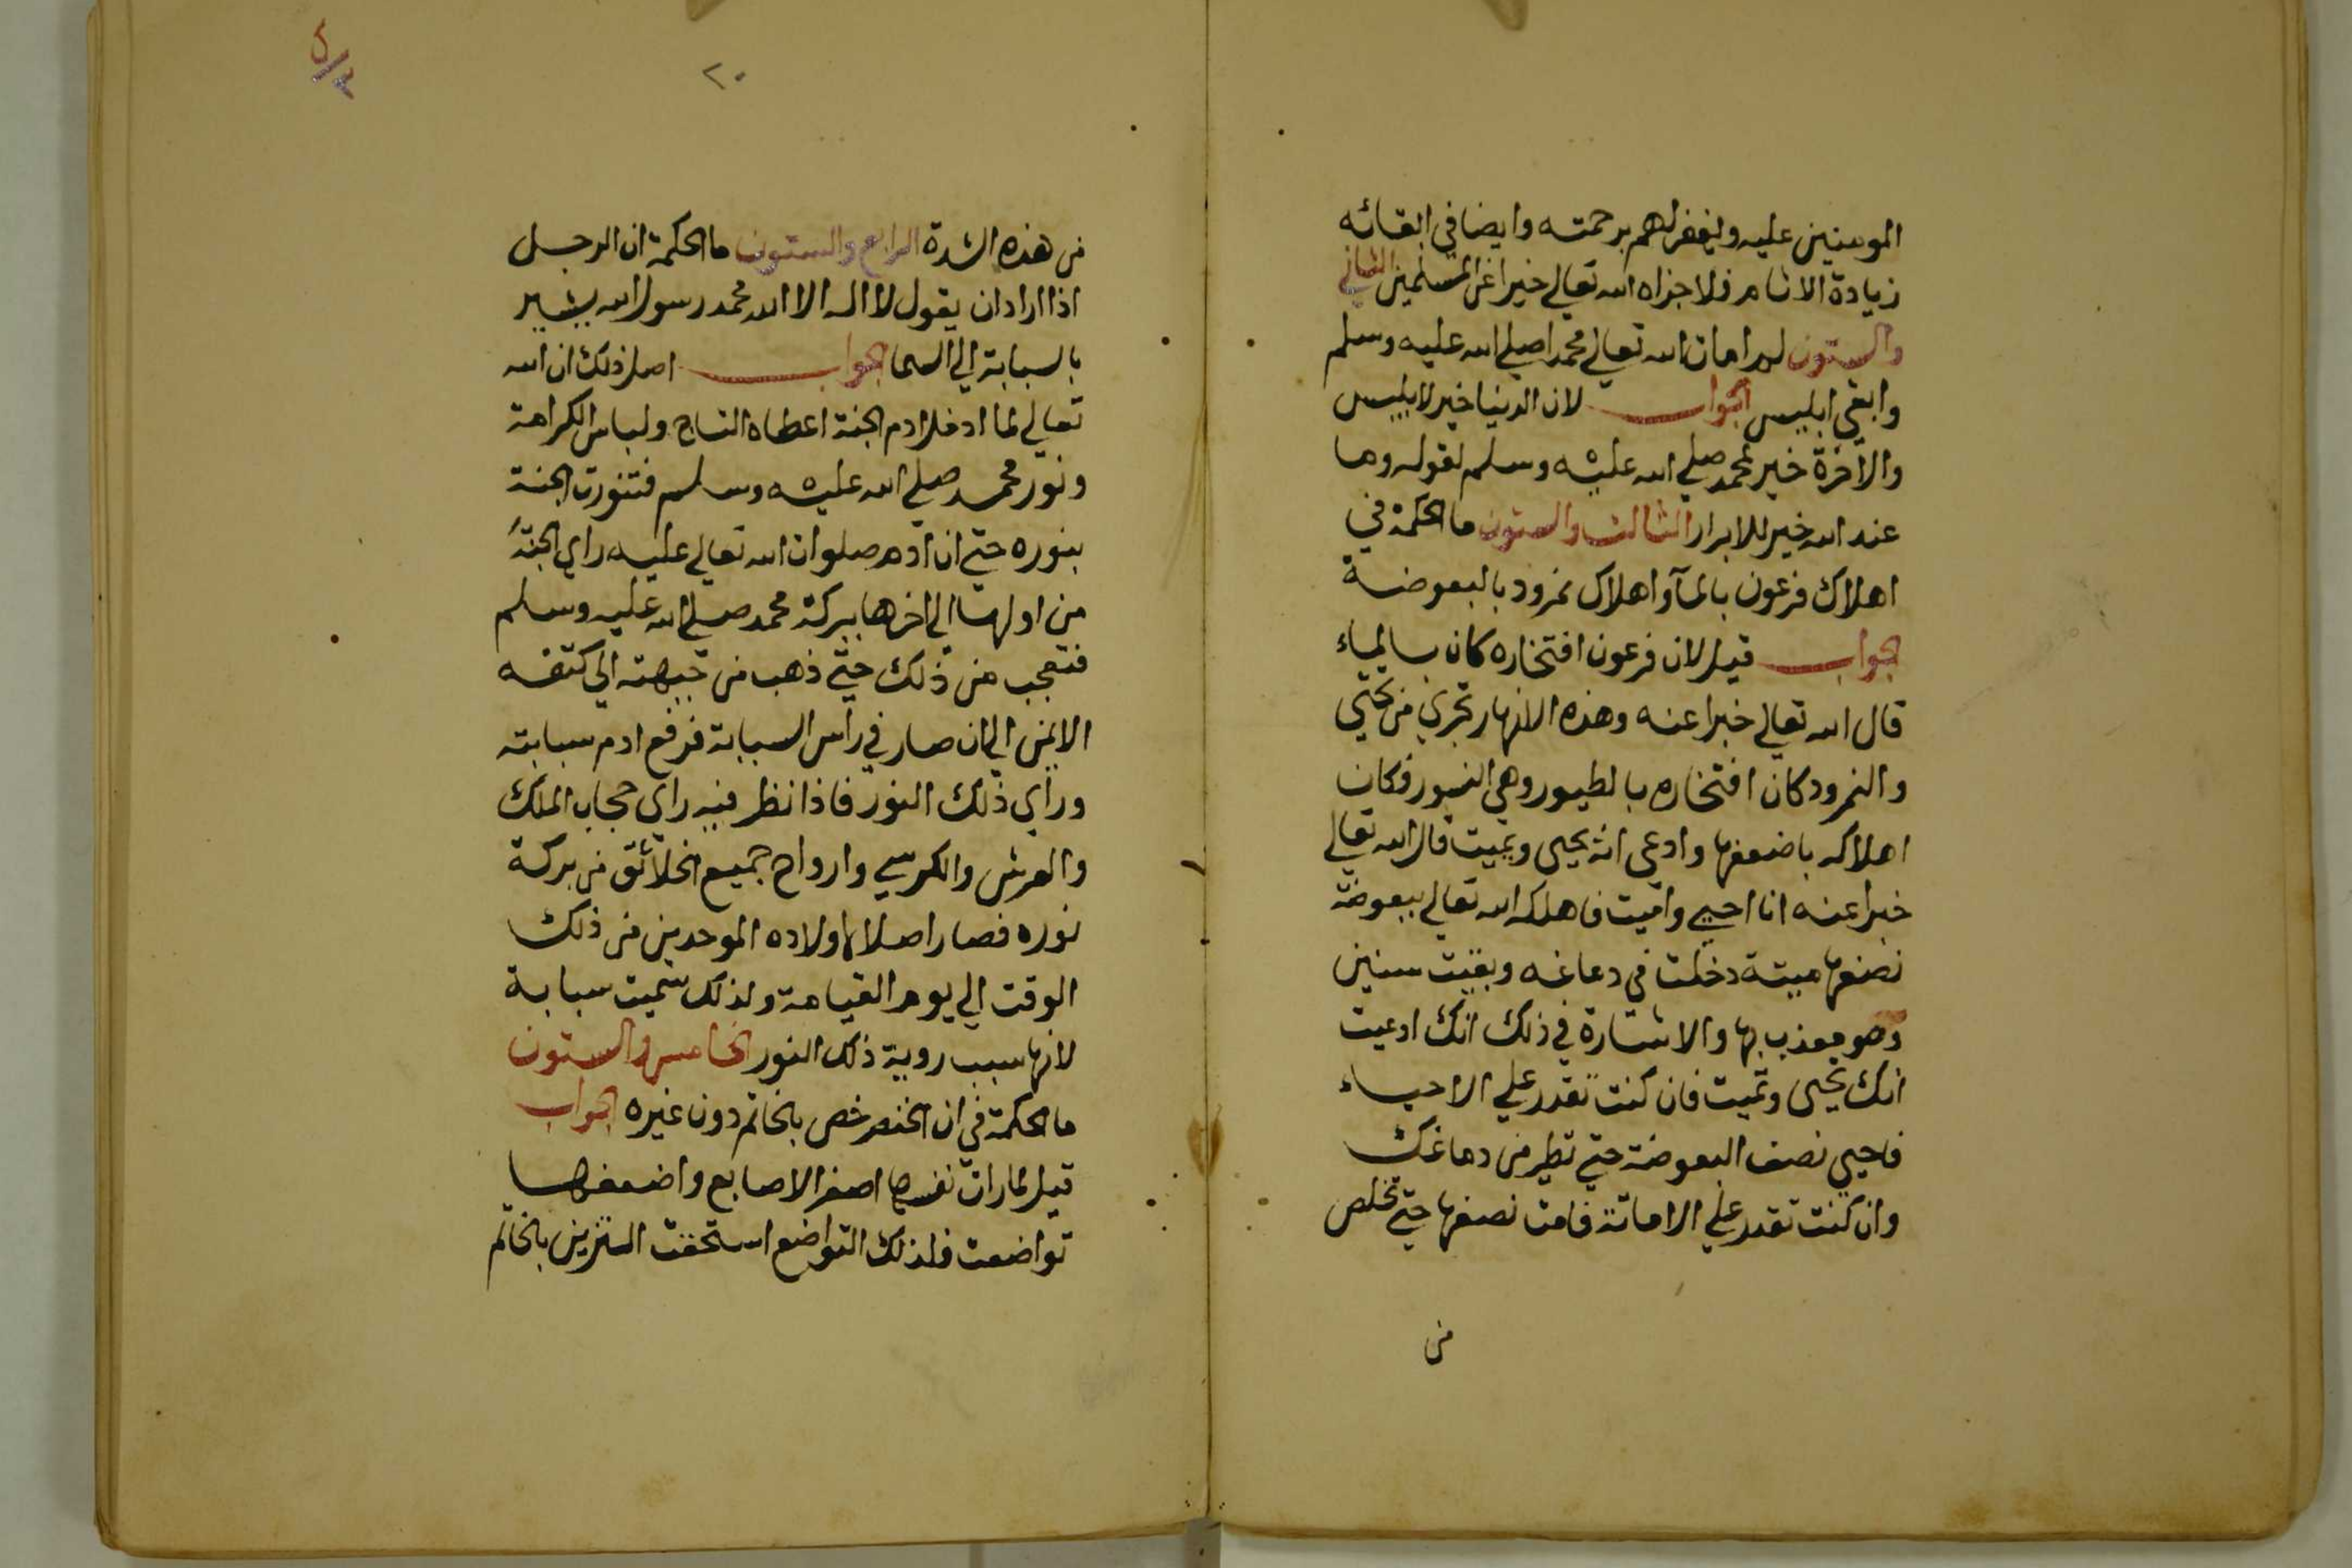 المومنين عليه وليغفر لهم برحمته وايضا في ابقائه
زيادة الاثام فلا جزاه الله تعالي خيرا عن المسلمين الثاني
والستون لم امات الله تعالي محمدا صلي الله عليه وسلم
وابقي ابليس الجواب لان الدنيا خير لابليس
والاخرة خير لمحمد صلي الله عليه وسلم لقوله وما
عند الله خير للابرار الثالث والستون ما الحكمة في
اهلاك فرعون بالمآ واهلاك نمرود بالبعوضة
الجواب قيل لان فرعون افتخاره كان بالماء
قال الله تعالي خبرا عنه وهذه الانهار تجري من تحتي
والنمرود كان افتخاره بالطيور وهي النسور فكان
اهلاكه باضعفها وادعي انه يحيي ويميت قال الله تعالي
خبرا عنه انا احيي واميت فاهلكه الله تعالي ببعوضة
نصفها ميتة دخلت في دماغه وبقيت سنين
وهو معذب بها والاشارة في ذلك انك ادعيت
انك تحيي وتميت فان كنت تقدر علي الاحياء
فاحيي نصف البعوضة حتي تطير من دماغك
وان كنت تقدر علي الاماتة فامت نصفها حتي تخلص
من
٢٠
من هذه الشدة الرابع والستون ما الحكمة ان الرجل
اذا اراد ان يقول لا اله الا الله محمد رسول الله يشير
بالسبابة الي السما الجواب اصل ذلك ان الله
تعالي لما ادخل ادم الجنة اعطاه التاج ولباس الكرامة
ونور محمد صلي الله عليه وسلم فتنورت الجنة
بنوره حتي ان ادم صلوات الله تعالي عليه راي الجنة
من اولها الي اخرها ببركة محمد صلي الله عليه وسلم
فتعجب من ذلك حتي ذهب من جبهته الي كتفه
الايمن الي ان صار في راس السبابة فرفع ادم سبابته
وراي ذلك النور فاذا نظر فيه راي حجاب الملك
والعرش والكرسي وارواح جميع الخلائق من بركة
نوره فصار اصلا لاولاده الموحدين من ذلك
الوقت الي يوم القيامة ولذلك سميت سبابة
لانها سبب روية ذلك النور الخامس والستون
ما الحكمة في ان الخنصر خص بالخاتم دون غيره الجواب
قيل لما رات نفسها اصغر الاصابع واضعفها
تواضعت فلذلك التواضع استحقت التزين بالخاتم